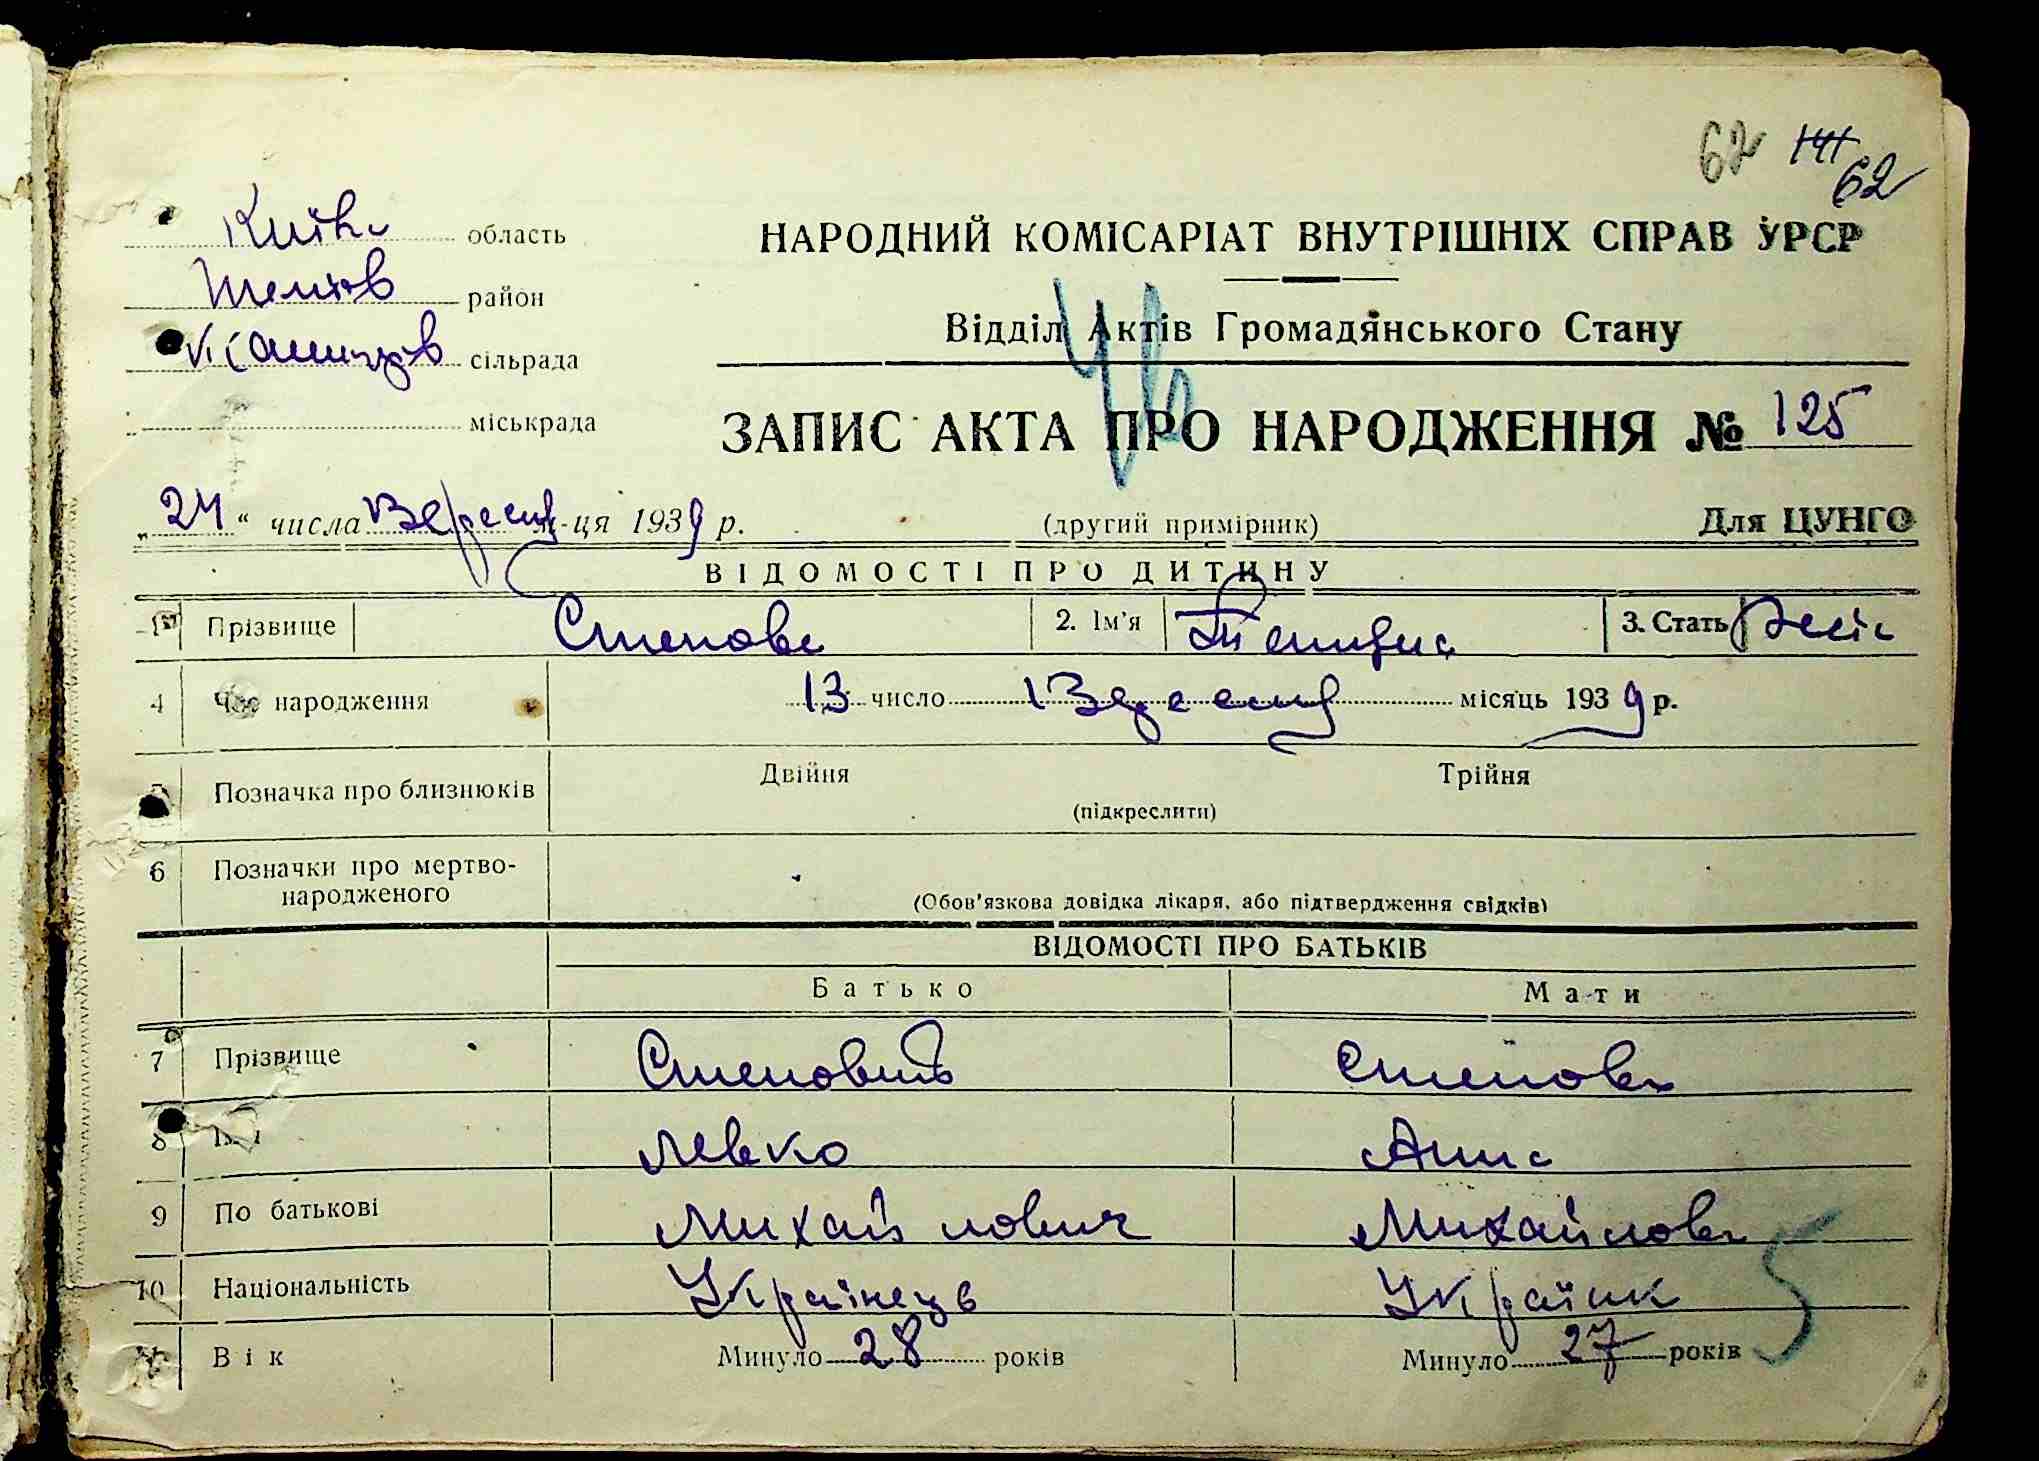 62 141 62
Київс область
НАРОДНИЙ КОМІСАРІАТ ВНУТРІШНІХ СПРАВ УРСР
район
Відділ Актів Громадянського Стану
сільрада
міськрада
ЗАПИС АКТА ПРО НАРОДЖЕННЯ № 125
„24“ числа Вересня м-ця 1939 р. (другий примірник) Для ЦУНГО
ВІДОМОСТІ ПРО ДИТИНУ
1 Прізвище Степова 2. Ім'я 3. Стать
4 Час народження 13 число Вересня місяць 1939 р.
5 Позначка про близнюків Двійня Трійня
(підкреслити)
6 Позначки про мертво-
народженого
(Обов'язкова довідка лікаря, або підтвердження свідків)
ВІДОМОСТІ ПРО БАТЬКІВ
Батько Мати
7 Прізвище Степова
8 Ім'я Левко Анна
9 По батькові Михайлович Михайлов
10 Національність Українець Українк
11 Вік Минуло 28 років Минуло 27 років
5